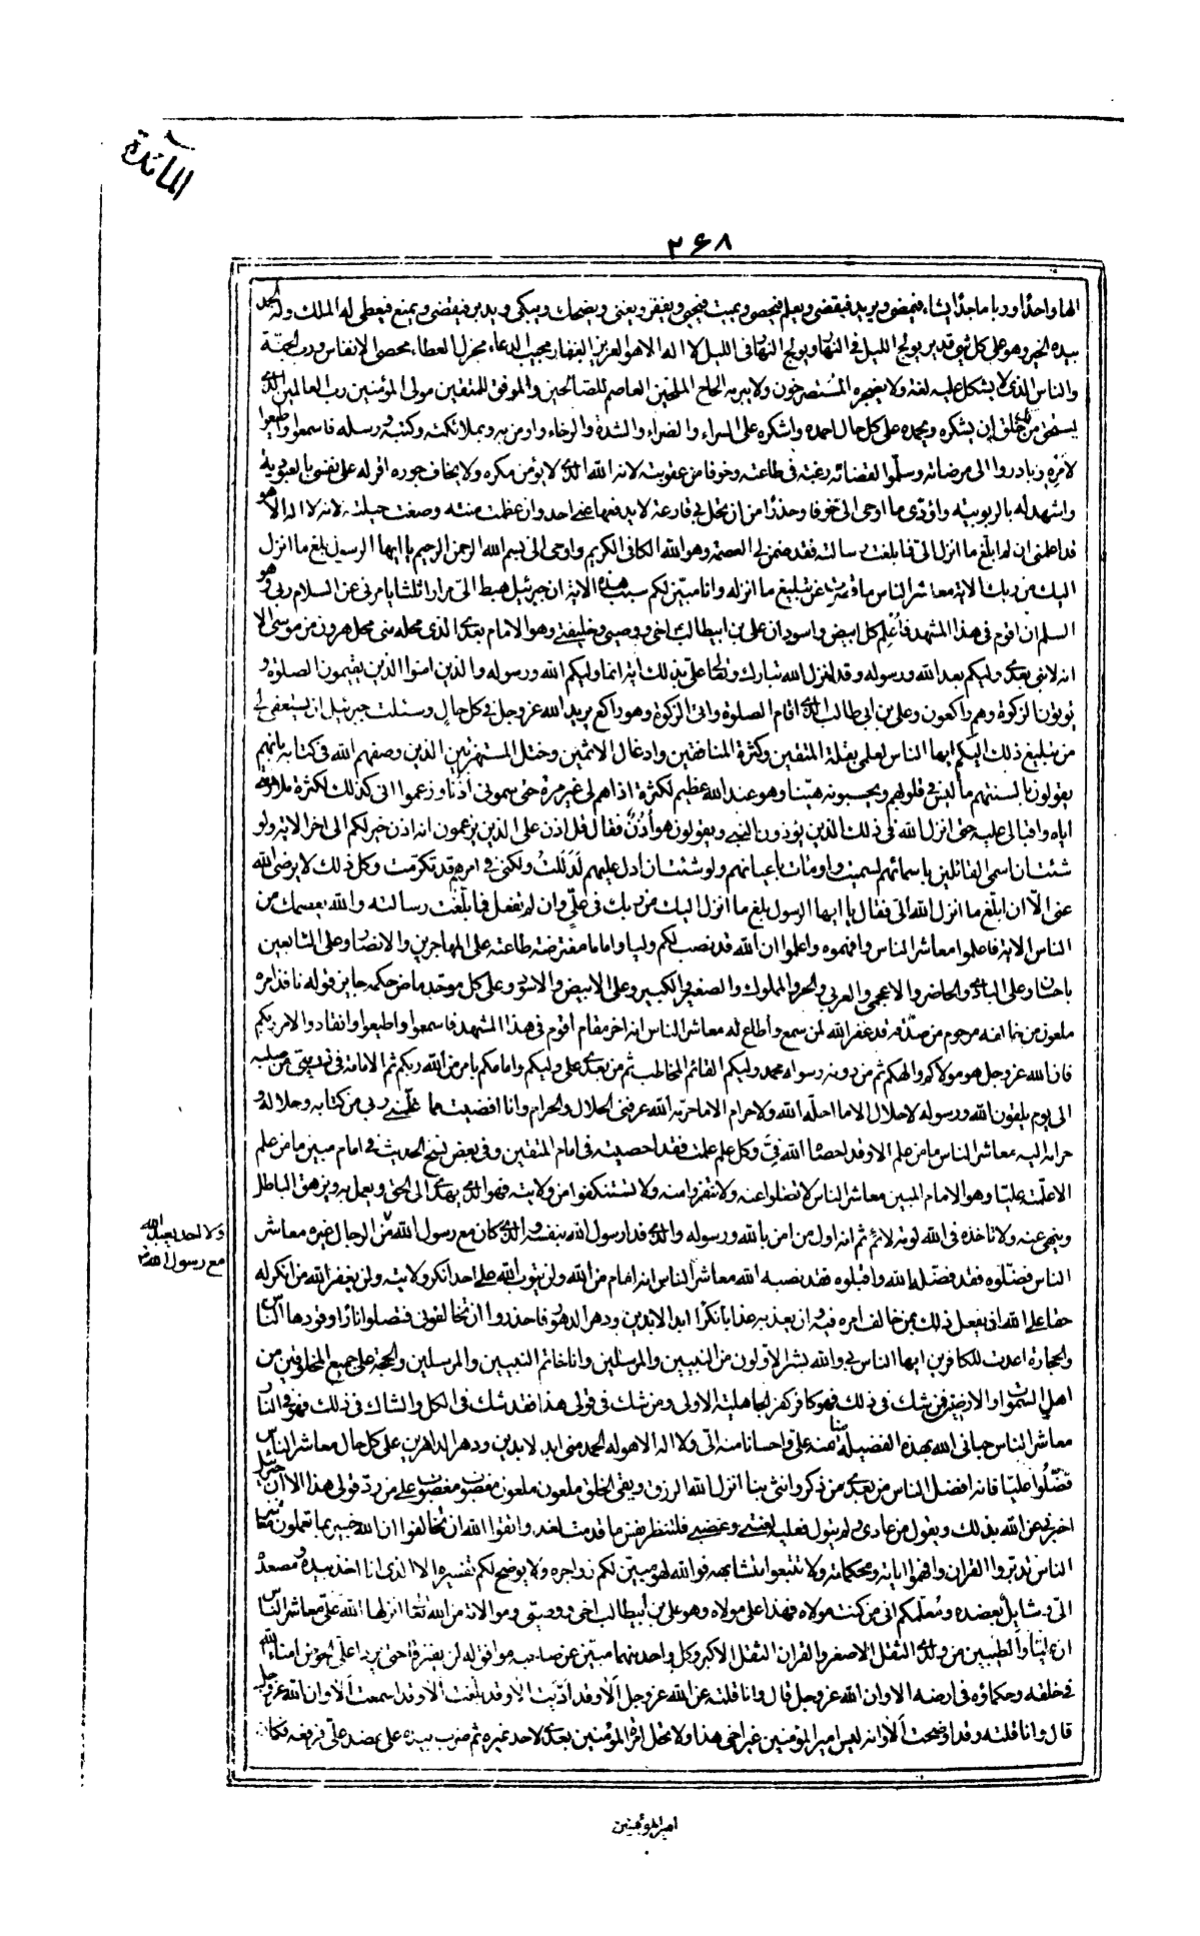 المآئدة
٢۶٨
الها واحدا وربا ماجدا يشاء فيمضى ويريد فيقضى ويعلم فيحصى ويميت فيحيى ويفقر ويغنى ويضحك ويبكى ويدبر فيقضى ويمنع فيعطى له الملك وله الحمد
بيده الخير وهو على كل شئ قدير يولج الليل فى النهار ويولج النهار فى الليل لا اله الا هو العزيز الغفار مجيب الدعاء مجزل العطاء محصى الانفاس ورب الجنة
والناس الذى لا يشكل عليه لغة ولا يضجره المستصرخون ولا يبرمه الحاح الملحين العاصم للصالحين والموفق للمتقين مولى المؤمنين رب العالمين الذى
يستحق من كل خلق ان يشكره ويحمده على كل حال احمده واشكره على السراء والضراء والشدة والرخاء واومن به وبملائكته وكتبه ورسله فاسمعوا واطيعوا
لامره وبادروا الى مرضاته وسلموا لقضائه رغبة فى طاعته وخوفا من عقوبته لانه الله الذى لا يؤمن مكره ولا يخاف جوره اقر له على نفسى بالعبودية
واشهد له بالربوبية واؤدى ما اوحى الى خوفا وحذرا من ان تحل بى قارعة لا يدفعها عنى احد وان عظمت منته وصفت خلته لانه لا اله الا هو
قد اعلمنى ان لم ابلغ ما انزل الى فما بلغت رسالته فقد ضمن لى العصمة وهو الله الكافى الكريم واوحى الى بسم الله الرحمن الرحيم يا ايها الرسول بلغ ما انزل
اليك من ربك الاية معاشر الناس ما قصرت عن تبليغ ما انزله وانا مبين لكم سبب هذه الاية ان جبرئيل هبط الى مرارا ثلثا يامرنى عن السلام ربى وهو
السلم ان اقوم فى هذا المشهد فاعلم كل ابيض واسود ان على بن ابيطالب اخى ووصيى وخليفتى وهو الامام بعدى الذى محله منى محل هرون من موسى الا
انه لا نبى بعدى وليكم بعد الله ورسوله وقد انزل الله تبارك وتعالى على بذلك اية انما وليكم الله ورسوله والذين امنوا الذين يقيمون الصلوة و
يؤتون الزكوة وهم راكعون وعلى بن ابى طالب الذى اقام الصلوة واتى الزكوة وهو راكع يريد الله عز وجل فى كل حال وسئلت جبرئيل ان يستعفى لى
من تبليغ ذلك اليكم ايها الناس لعلمى بقلة المتقين وكثرة المنافقين وادغال الاثمين وختل المستهزئين الذين وصفهم الله فى كتابه بانهم
يقولون بالسنتهم ما ليس فى قلوبهم ويحسبونه هينا وهو عند الله عظيم لكثرة اذاهم لى غير مرة حتى سمونى اذنا وزعموا انى كذلك لكثرة ملازمته
اياه واقبالى عليه حتى انزل الله فى ذلك الذين يؤذون النبى ويقولون هو اذن فقال قل اذن على الذين يزعمون انه اذن خير لكم الى اخر الاية ولو
شئت ان اسمى القائلين باسمائهم لسميت واومات باعيانهم ولو شئت ان ادل عليهم لدللت ولكنى فى امرهم قد تكرمت وكل ذلك لا يرضى الله
عنى الا ان ابلغ ما انزل الله الى فقال يا ايها الرسول بلغ ما انزل اليك من ربك فى على وان لم تفعل فما بلغت رسالته والله يعصمك من
الناس الاية فاعلموا معاشر الناس وافهموه واعلموا ان الله قد نصب لكم وليا واماما مفترضة طاعته على المهاجرين والانصار وعلى التابعين
باحسان وعلى البادى والحاضر والاعجمى والعربى والحر والمملوك والصغير والكبير وعلى الابيض والاسود وعلى كل موحد ماض حكمه جايز قوله نافذ امره
ملعون من خالفه مرحوم من صدقه قد غفر الله لمن سمع واطاع له معاشر الناس انه اخر مقام اقوم فى هذا المشهد فاسمعوا واطيعوا وانقادوا لامر ربكم
فان الله عز وجل هو مولاكم والهكم ثم من دونه رسوله محمد وليكم القائم المخاطب ثم من بعدى على وليكم وامامكم بامر من الله ربكم ثم الامامة فى ذريتى من صلبه
الى يوم يلقون الله ورسوله لا حلال الا ما احله الله ولا حرام الا ما حرمه الله عرفنى الحلال والحرام وانا افضيت مما علمنى ربى من كتابه وحلاله و
حرامه اليه معاشر الناس ما من علم الا وقد احصاه الله فى وكل علم علمت فقد احصيته فى امام المتقين وفى بعض نسخ الحديث فى امام مبين ما من علم
الا علمته عليا وهو الامام المبين معاشر الناس لا تضلوا عنه ولا تنفروا منه ولا تستنكفوا من ولايته فهو الذى يهدى الى الحق ويعمل به ويزهق الباطل
وينهى عنه ولا تاخذه فى الله لومة لائم ثم انه اول من امن بالله ورسوله والذى فدا رسول الله بنفسه والذى كان مع رسول الله من الرجال غيره معاشر
ولا احد يعبد الله
مع رسول الله
الناس فضلوه فقد فضله الله واقبلوه فقد نصبه الله معاشر الناس انه امام من الله ولن يتوب الله على احد انكر ولايته ولن يغفر الله من انكر له
حقا على الله ان يفعل ذلك بمن خالف امره فيه وان يعذبه عذابا نكرا ابد الابدين ودهر الدهور فاحذروا ان تخالفونى فتصلوا نارا وقودها الناس
والحجارة اعدت للكافرين ايها الناس بى والله بشر الاولون من النبيين والمرسلين وانا خاتم النبيين والمرسلين والحجة على جميع المخلوقين من
اهل السموات والارضين فمن شك فى ذلك فهو كافر كفر الجاهلية الاولى ومن شك فى قولى هذا فقد شك فى الكل والشاك فى ذلك فهو فى النار
معاشر الناس حبانى الله بهذه الفضيلة منا منه على واحسانا منه الى ولا اله الا هو له الحمد منى ابد الابدين ودهر الداهرين على كل حال معاشر الناس
فضلوا عليا فانه افضل الناس من بعدى من ذكر وانثى بنا انزل الله الرزق وبقى الخلق ملعون ملعون مغضوب مغضوب على من رد قولى هذا الا ان جبرئيل
اخبرنى عن الله بذلك ويقول من عادى عليا ولم يتوله فعليه لعنتى وغضبى فلتنظر نفس ما قدمت لغد واتقوا الله ان تخالفوا ان الله خبير بما تعملون معاشر
الناس تدبروا القران وافهموا اياته ومحكماته ولا تتبعوا متشابهه فوالله لهو مبين لكم زواجره ولا يوضح لكم تفسيره الا الذى انا اخذ بيده ومصعده
الى وشايل بعضده ومعلمكم انى من كنت مولاه فهذا على مولاه وهو على بن ابيطالب اخى ووصيى وموالاته من الله تعالى انزلها الله على معاشر الناس
ان عليا والطيبين من ولدى الثقل الاصغر والقران الثقل الاكبر وكل واحد منهما مبين عن صاحبه موافق له لن يفترقا حتى يردا على الحوض امناء الله
فى خلقه وحكماؤه فى ارضه الا وان الله عز وجل قال وانا قلته عن الله عز وجل الا وقد اديت الا وقد بلغت الا وقد اسمعت الا وان الله عز وجل
قال وانا قلته وقد اوضحت الا وانه ليس امير المؤمنين غير اخى هذا ولا تحل امرة المؤمنين بعدى لاحد غيره ثم ضرب بيده على عضد على فرفعه فكان
امير المؤمنين